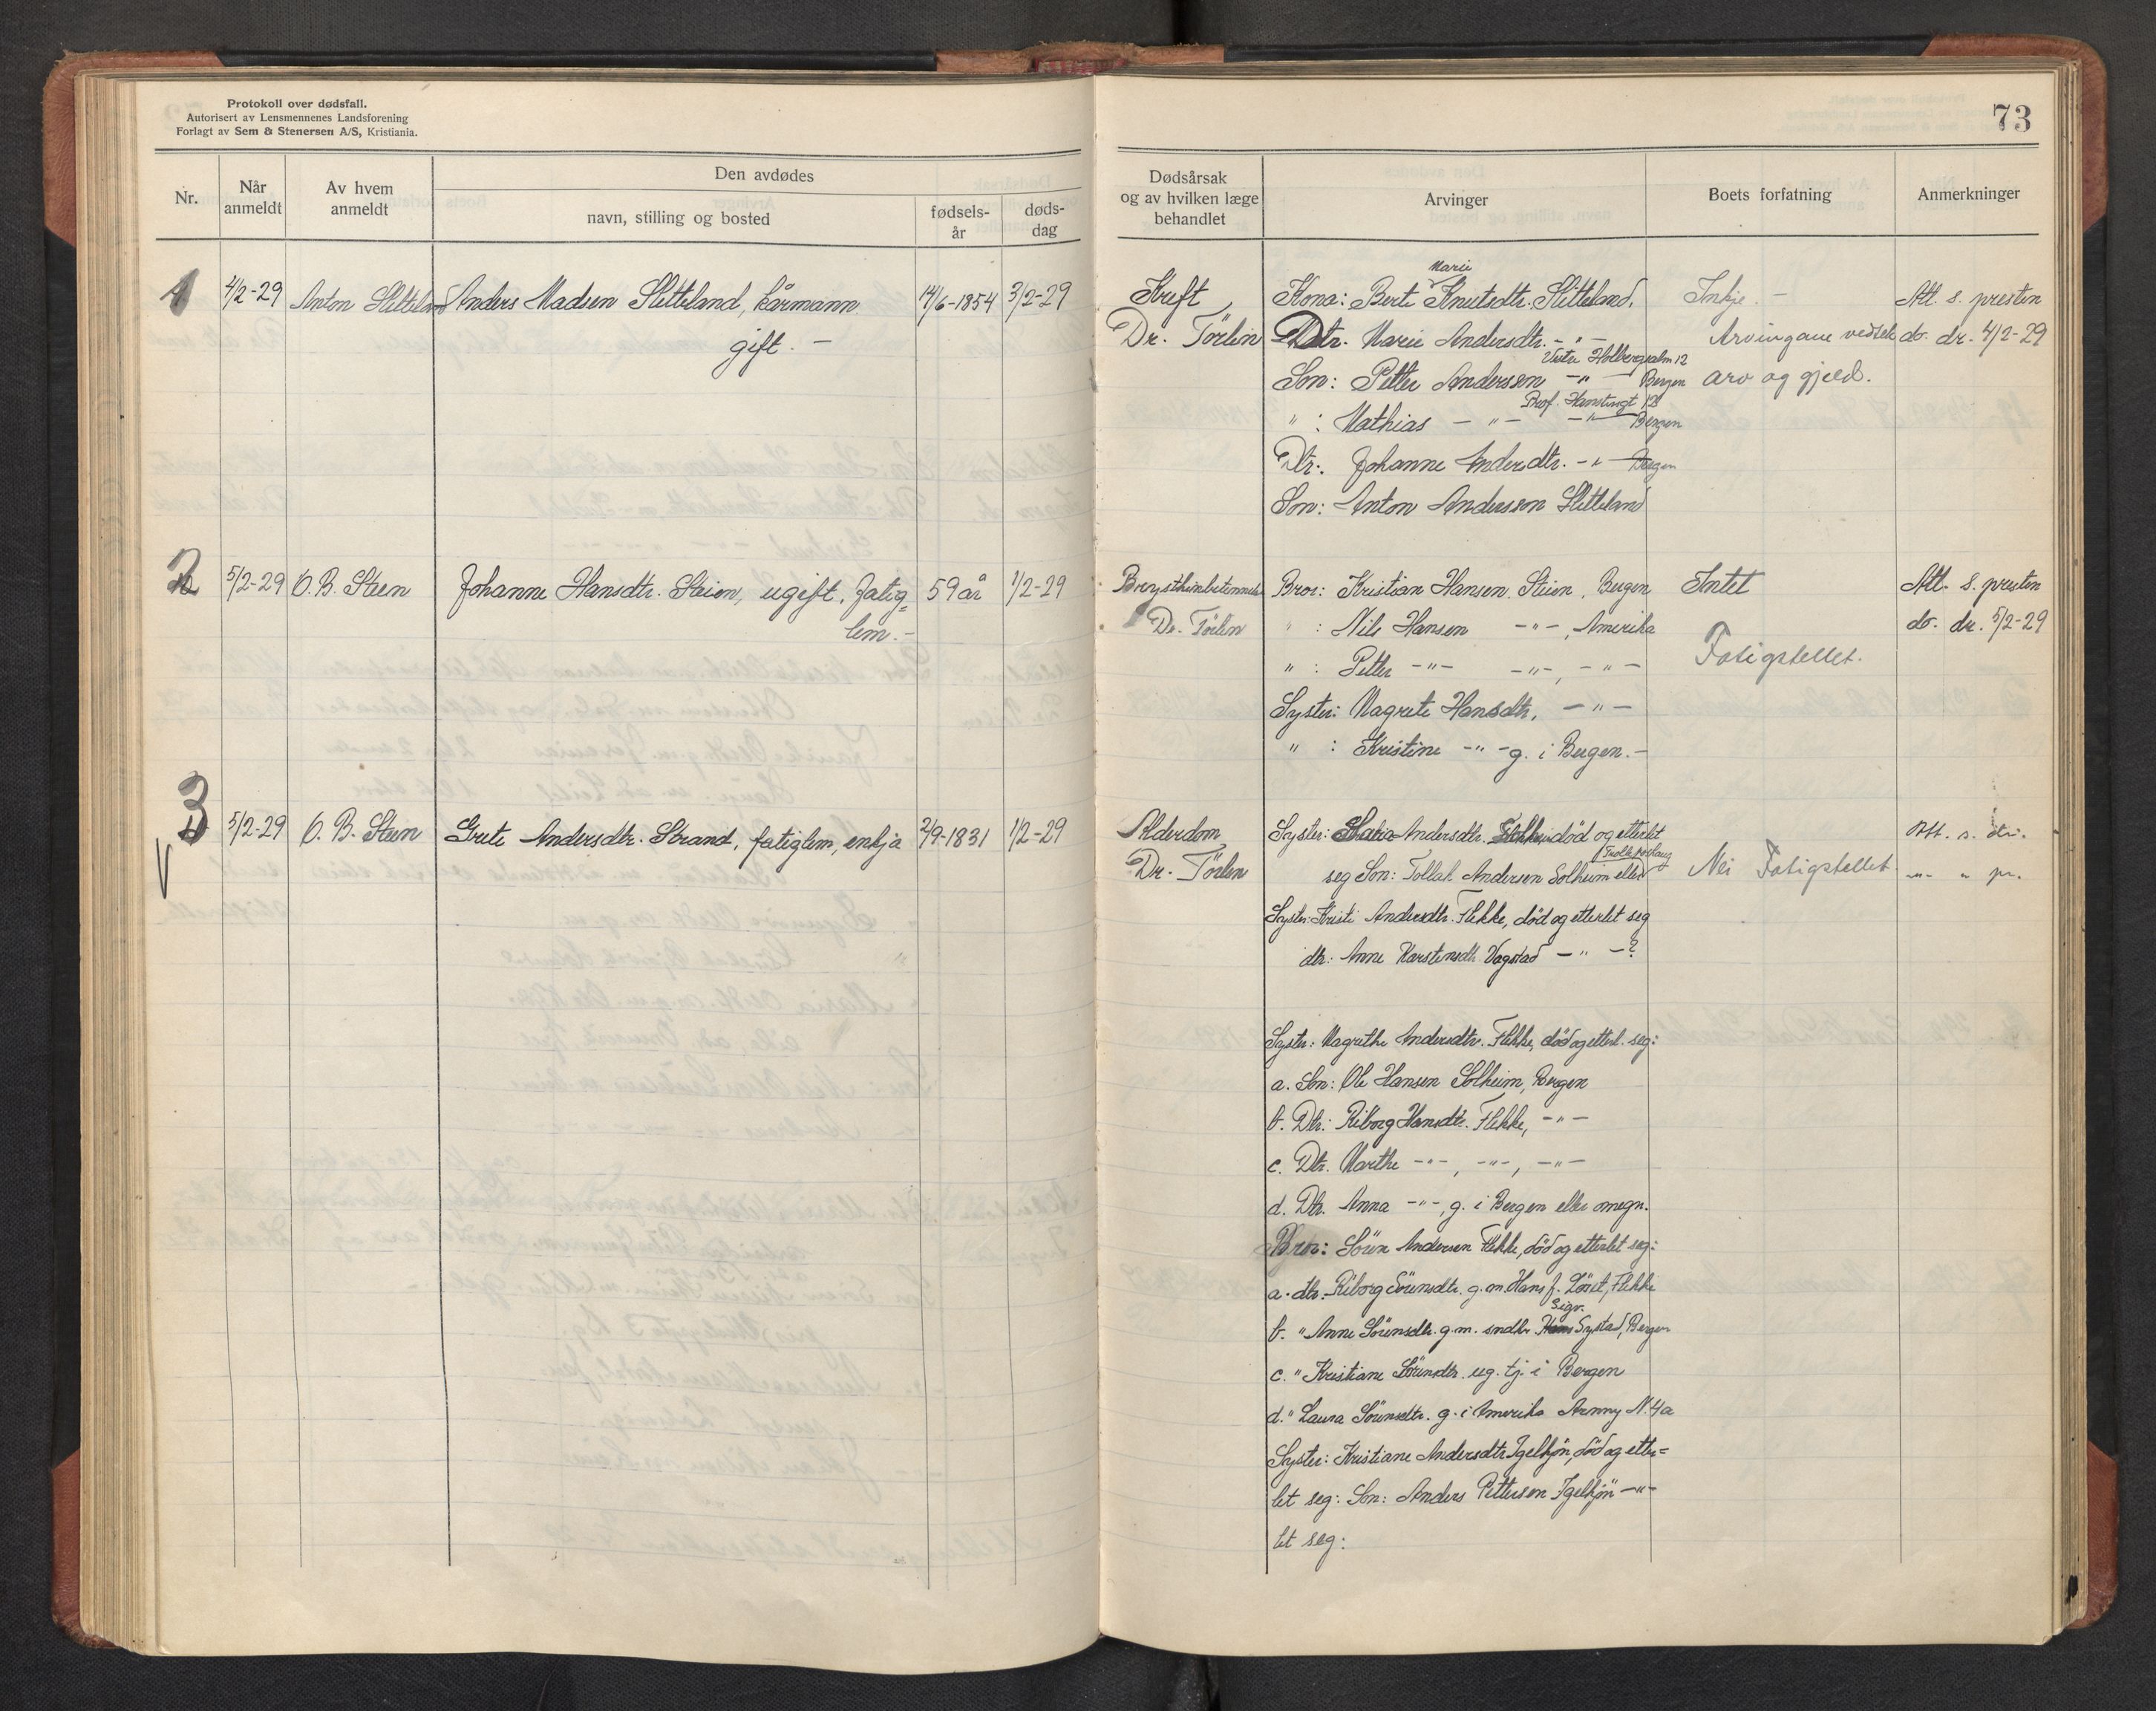 Protokoll over dødsfall.
Autorisert av Lensmennenes Landsforening
Forlagt av Sem & Stenersen A/S, Kristiania.
73
Nr.
Når anmeldt
Av hvem anmeldt
Den avdødes
navn, stilling og bosted
fødsels-år
døds-dag
Dødsårsak og av hvilken læge behandlet
Arvinger
Boets forfatning
Anmerkninger
1
4/2-29
Anton Sletteland
Anders Madsen Sletteland, kårmann
gift. -
14/6-1854
3/2-29
Kreft,
Dr. Törlen
Marie
Kona: Berte Knutsdtr. Sletteland.
Dtr. Marie Andersdtr. - " -
Vestre Holbergsalm 12
Son: Petter Andersen - " - Bergen
Prof. Hanstingt 12
" : Mathias - " - - " - Bergen
Dtr: Johanne Andersdtr. - " - Bergen
Son: Anton Andersson Sletteland
Inkje. -
Arvingane vedtek
arv og gjeld.
Att. s. presten
do. dr. 4/2-29
2
5/2-29
O. B. Steen
Johanne Hansdtr. Steien, ugift. Fatig=
lem. -
59 år
1/2-29
Brystkinbetennelse
Dr. Törlen
Bror: Kristian Hansen Steien, Bergen
" : Nils Hansen - " - , Amerika
" : Petter - " - - " - , - " -
Syster: Magrete Hansdtr. - " -
" : Kristine - " - g. i Bergen. -
Intet
Fatigstellet.
Att. s. presten
do. dr. 5/2-29
3
V
5/2-29
O. B. Steen
Grete Andersdtr. Strand, fatiglem, enkja
2/9-1831
1/2-29
Alderdom
Dr. Törlen
Syster: Maria Andersdtr. Flekke, död og etterlet
seg Son: Tollak Andersen Solheim eller
Syster: Kristi Andersdtr. Flekke, död og etterlet seg
dtr: Anne Karstensdtr. Vagstad - " - ?
Syster: Magrethe Andersdtr. Flekke, död og etterl. seg:
a. Son: Ole Hansen Solheim, Bergen
b. Dtr: Riborg Hansdtr. Flekke, - " -
c. Dtr. Marthe - " - , - " - , - " -
d. Dtr. Anna - " - , g. i Bergen eller omegn.
Bror: Sören Andersen Flekke, död og etterlet seg:
a. dtr. Riborg Sörensdtr. g. m. Hans J. Löset, Flekke
Sigr.
b. " Anne Sörensdtr. g. m. sndkr. Hans Systad, Bergen
c. " Kristiane Sörensdtr. ug. tj. i Bergen
d. " Laura Sörensdtr. g. i Amerika N. 4a
Syster: Kristiane Andersdtr Igelkjön, död og etter=
let seg: Son: Anders Pettersen Igelkjön - " -
let seg:
Nei Fatigstellet
Att. s. dr.
- " - " pr.